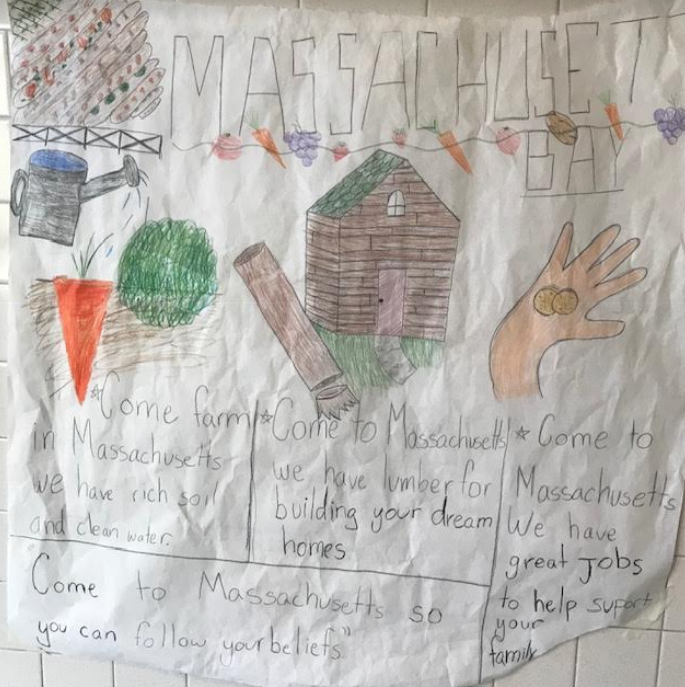 MASSACHUSET
BAY
*Come farm
in Massachusetts
we have rich soil
and clean water.
*Come to Massachusetts
we have lumber for
building your dream
homes
* Come to
Massachusetts
We have
great jobs
to help suport
your
family
"Come to Massachusetts so
you can follow your beliefs"